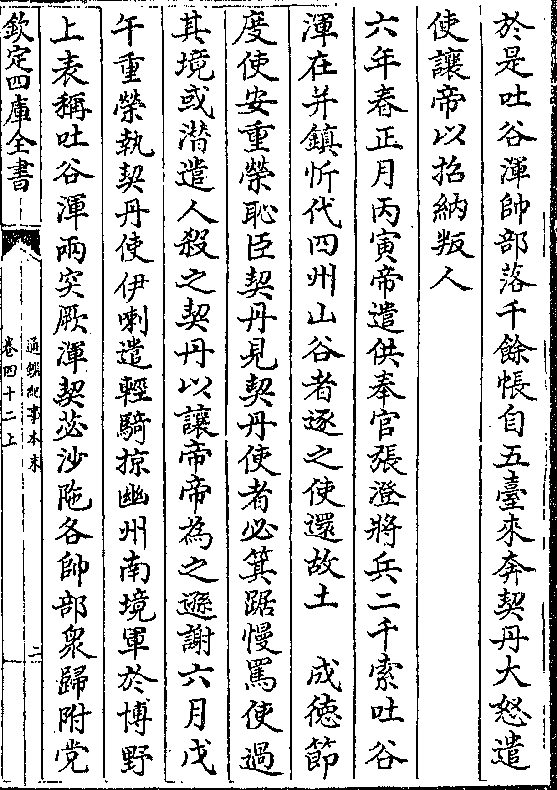 於是吐谷渾帥部落千餘帳自五臺來奔契丹大怒遣
使讓帝以招納叛人
六年春正月丙寅帝遣供奉官張澄將兵二千索吐谷
渾在并鎮忻代四州山谷者逐之使還故土　成徳節
度使安重榮恥臣契丹見契丹使者必箕踞慢罵使過
其境或潛遣人殺之契丹以讓帝帝為之遜謝六月戊
午重榮執契丹使伊喇遣輕騎掠幽州南境軍於博野
上表稱吐谷渾兩突厥渾契苾沙陁各帥部衆歸附党
欽定四庫全書
通鑑紀事本末
卷四十二上
二